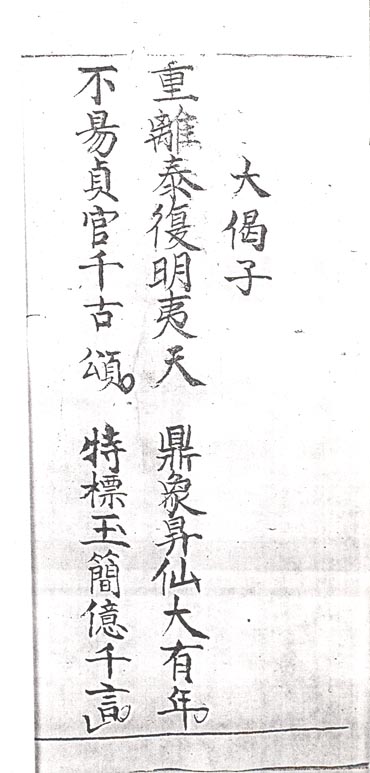 大偈子
重離泰復明夷天 鼎象昇仙大有年。
不易貞官千古頌。 特標玉簡億千言。